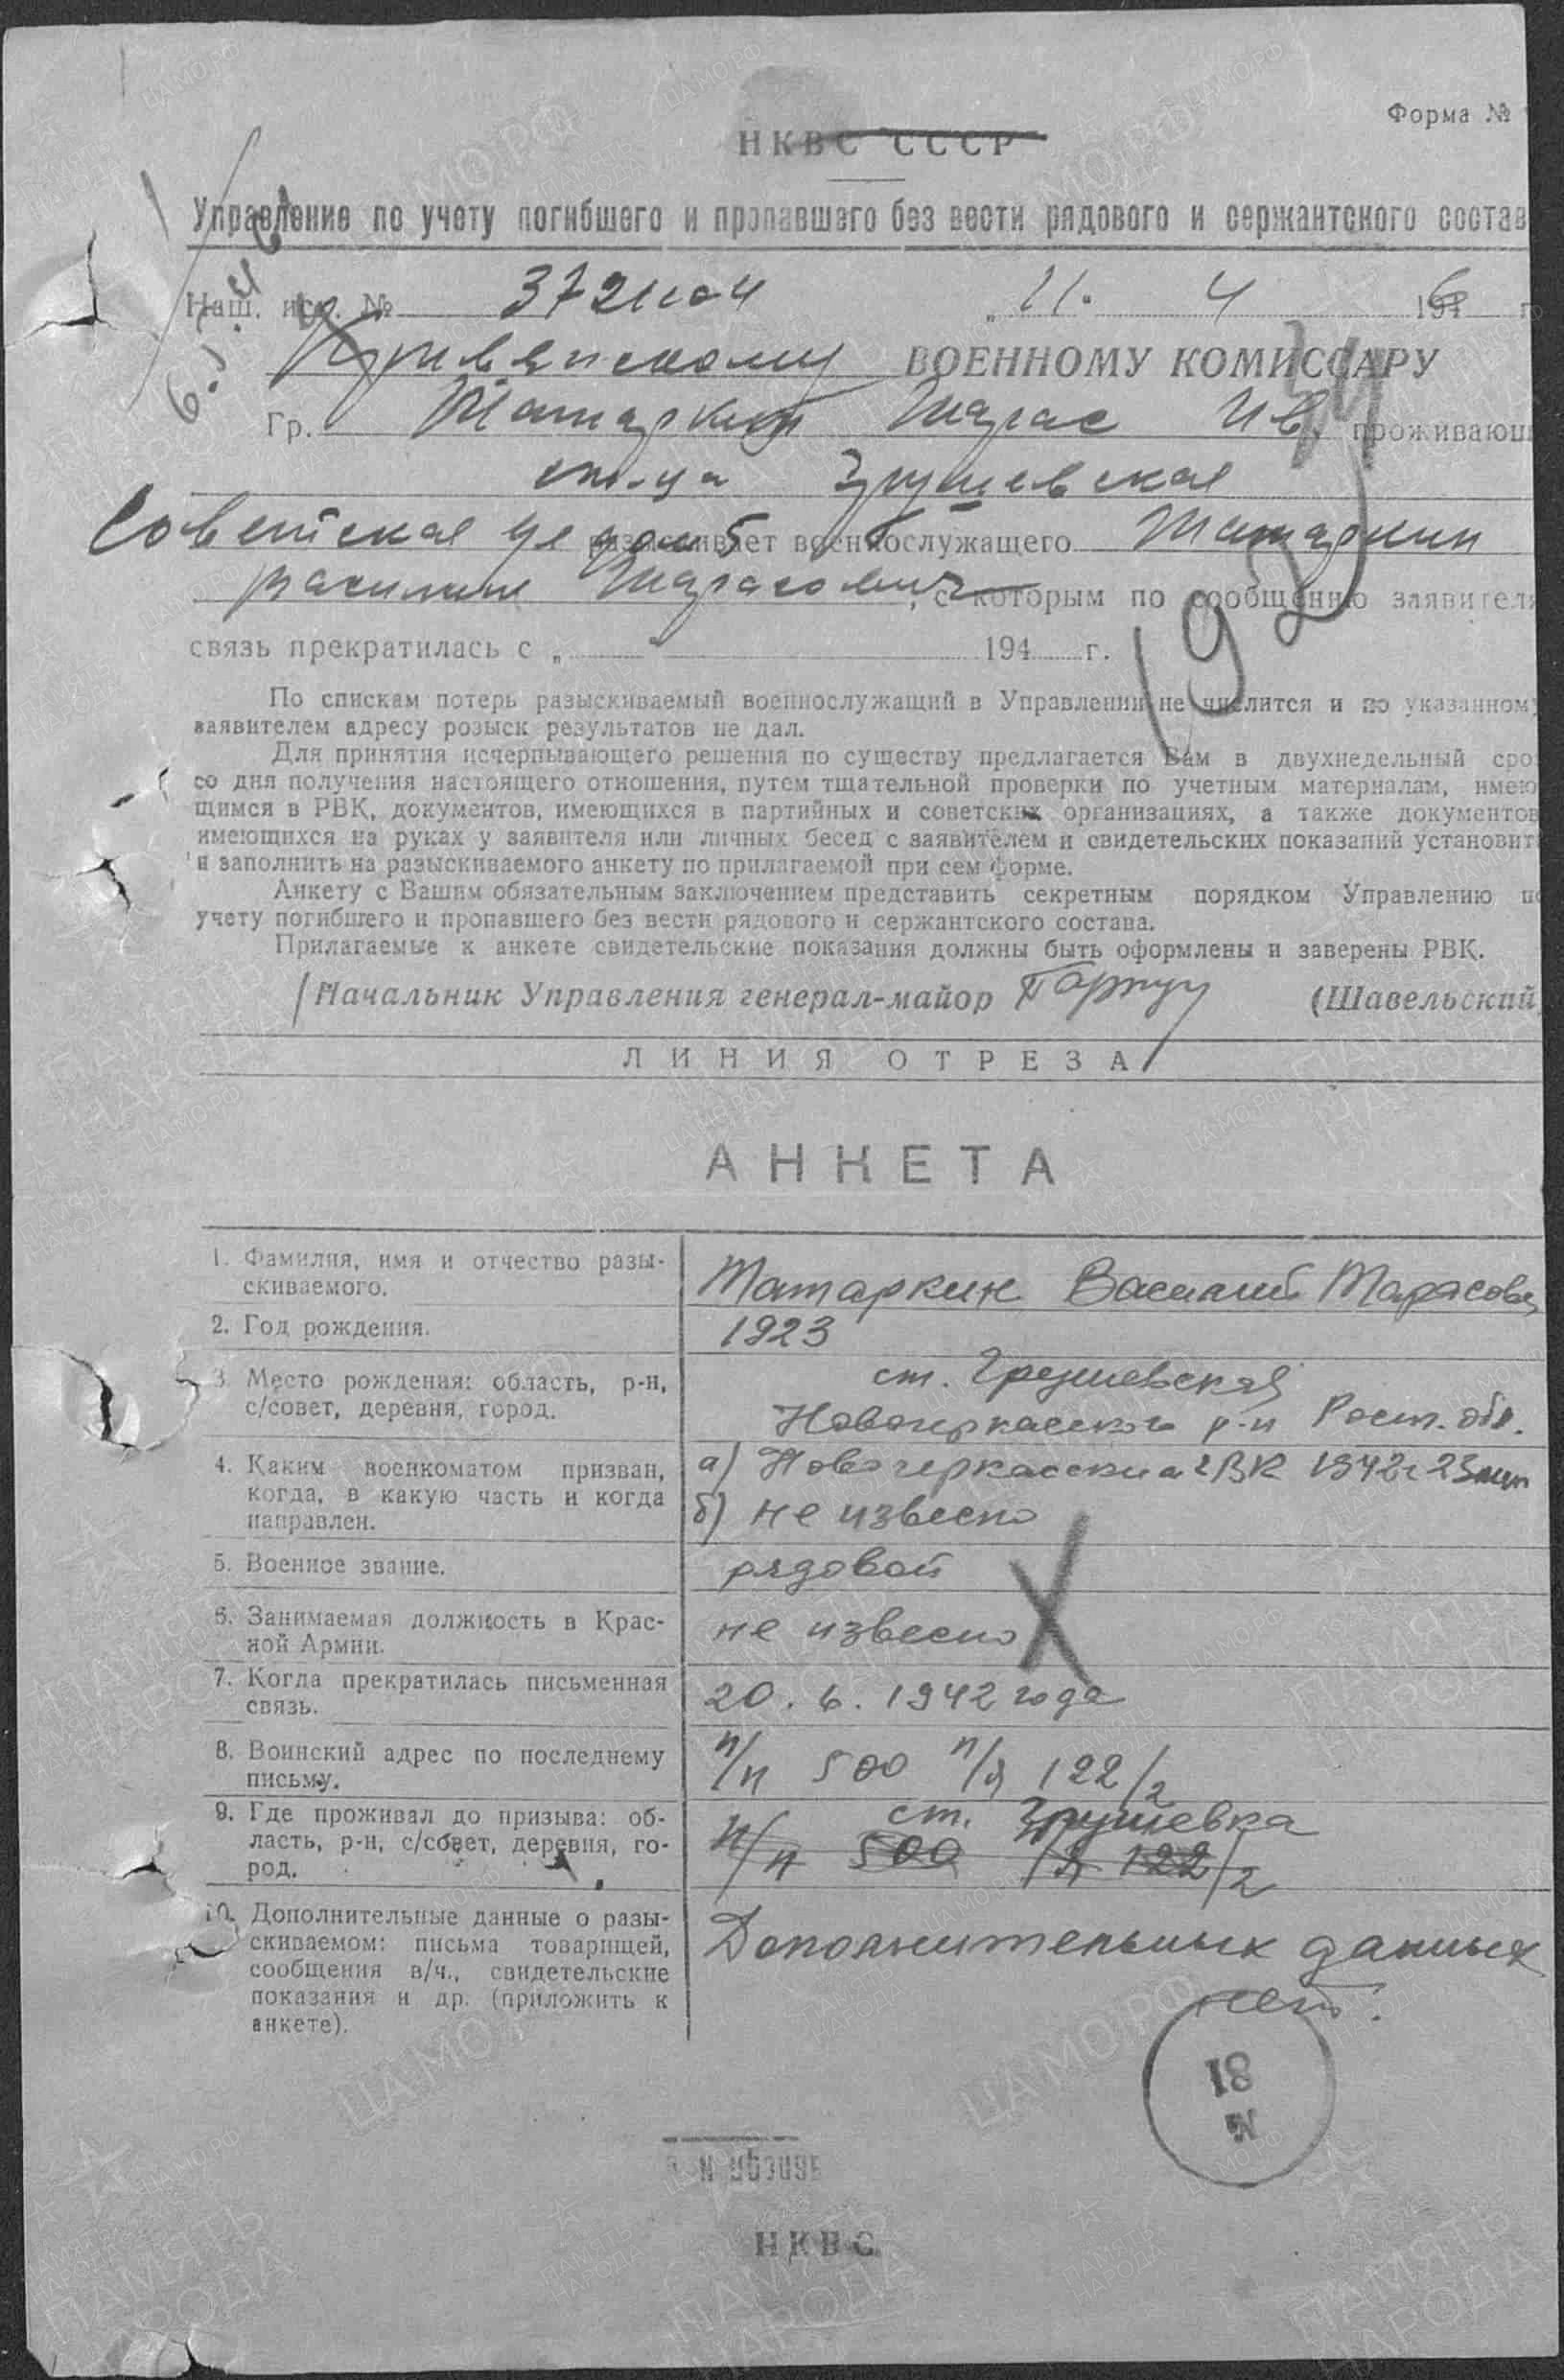 Форма №
НКВС СССР
Управление по учету погибшего и пропавшего без вести рядового и сержантского состав
Наш. исх. № 11. 4 1946 г
Кривянскому ВОЕННОМУ КОМИССАРУ
Гр. Татаркин Тарас Ив. проживающ
ст-ца Грушевская
Советская ул дом 5 разыскивает военнослужащего Татаркин
Василий Тарасович, с которым по сообщению заявителя
связь прекратилась с „ 194 г.
По спискам потерь разыскиваемый военнослужащий в Управлении не числится и по указанному
заявителем адресу розыск результатов не дал.
Для принятия исчерпывающего решения по существу предлагается Вам в двухнедельный сро
со дня получения настоящего отношения, путем тщательной проверки по учетным материалам, имею
щимся в РВК, документов, имеющихся в партийных и советских организациях, а также документов
имеющихся на руках у заявителя или личных бесед с заявителем и свидетельских показаний установит
и заполнить на разыскиваемого анкету по прилагаемой при сем форме.
Анкету с Вашим обязательным заключением представить секретным порядком Управлению по
учету погибшего и пропавшего без вести рядового и сержантского состава.
Прилагаемые к анкете свидетельские показания должны быть оформлены и заверены РВК.
Начальник Управления генерал-майор (Шавельский)
ЛИНИЯ ОТРЕЗА
АНКЕТА
1. Фамилия, имя и отчество разы-
скиваемого.
Татаркин Василий Тарасович
2. Год рождения.
1923
3. Место рождения: область, р-н,
с/совет, деревня, город.
ст. Грушевская
Новочеркасского р-н Рост. обл.
4. Каким военкоматом призван,
когда, в какую часть и когда
направлен.
а) Новочеркасским ГВК 1942г
б) не извесно
5. Военное звание.
рядовой
6. Занимаемая должность в Крас-
ной Армии.
не извесно
7. Когда прекратилась письменная
связь.
20. 6. 1942 года
8. Воинский адрес по последнему
письму.
п/п 500 п/я 122/2
9. Где проживал до призыва: об-
ласть, р-н, с/совет, деревня, го-
род.
ст. Грушевка
п/п 500 /я 122/2
10. Дополнительные данные о разы-
скиваемом: письма товарищей,
сообщения в/ч., свидетельские
показания и др. (приложить к
анкете).
Дополнительных данных
нет.
№
81
НКВС